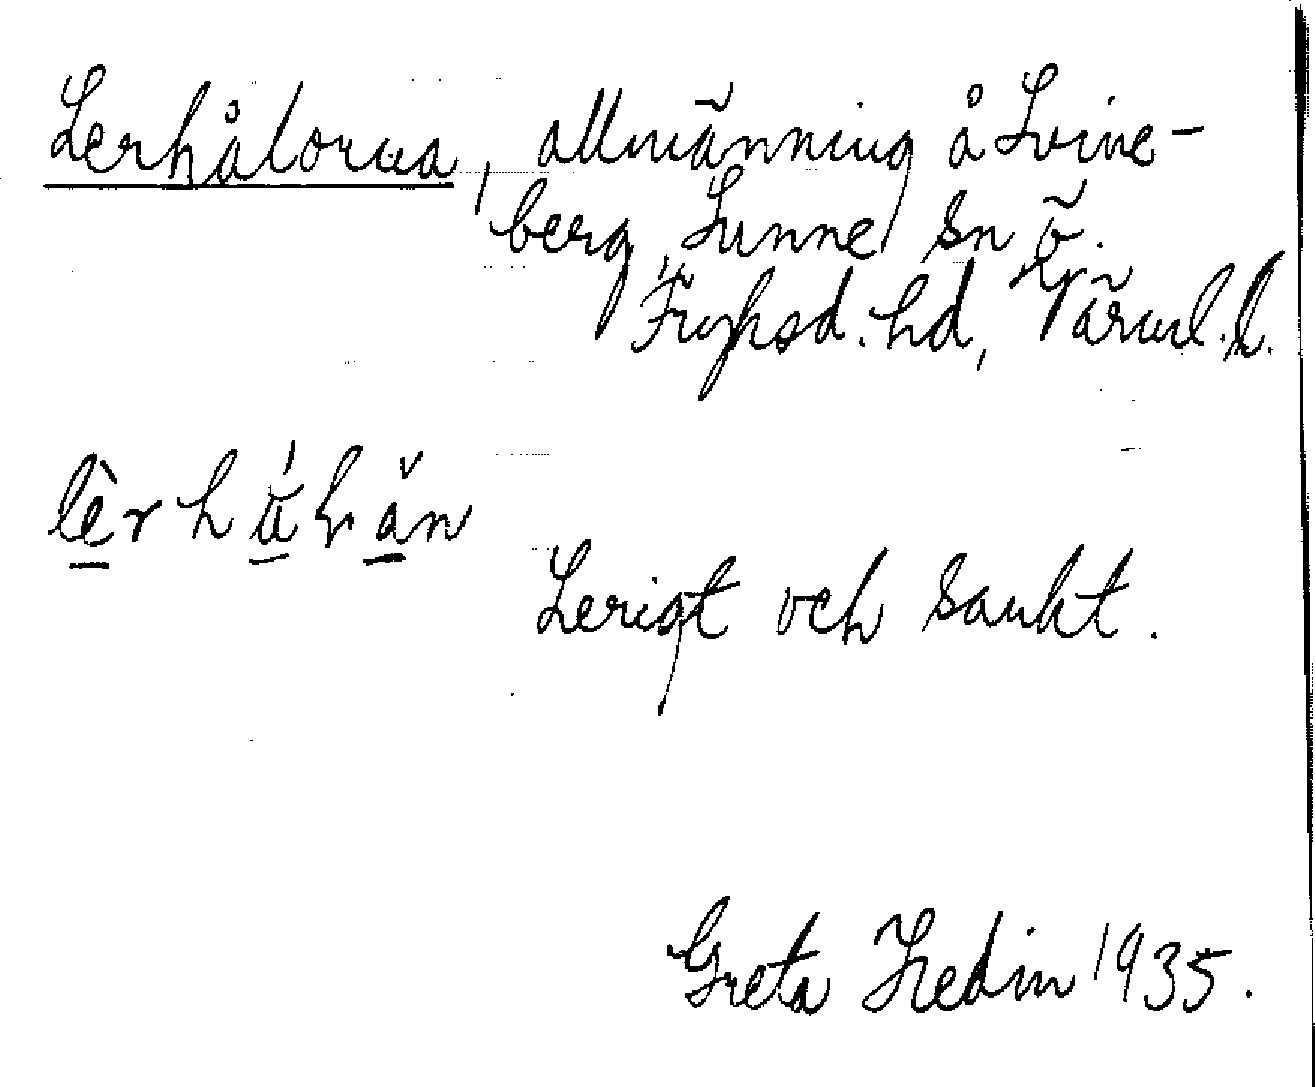 Lerhålorna, allmänning å Svine-
berg, Sunne sn ö.
Fryksd. hd, Värml. l.
Lerigt och sankt.
Greta Hedin 1935.